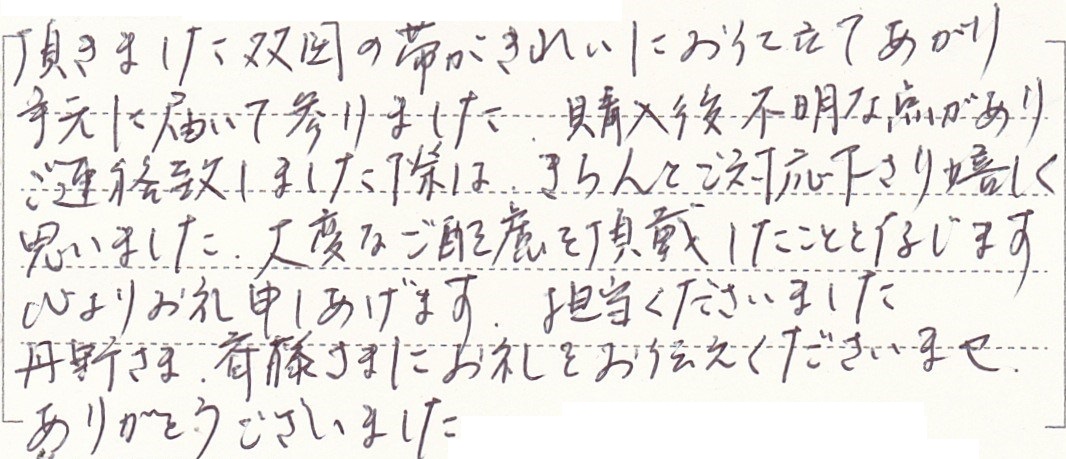 頂きました双図の帯がきれいにお仕立てあがり
手元に届いて参りました、購入後不明な点があり
ご連絡致しました際は、きちんとご対応下さり嬉しく
思いました、大変なご配慮を頂戴したことと存じます
心よりお礼申しあげます、担当くださいました
丹野さま、斉藤さまにお礼をお伝えくださいませ、
ありがとうございました